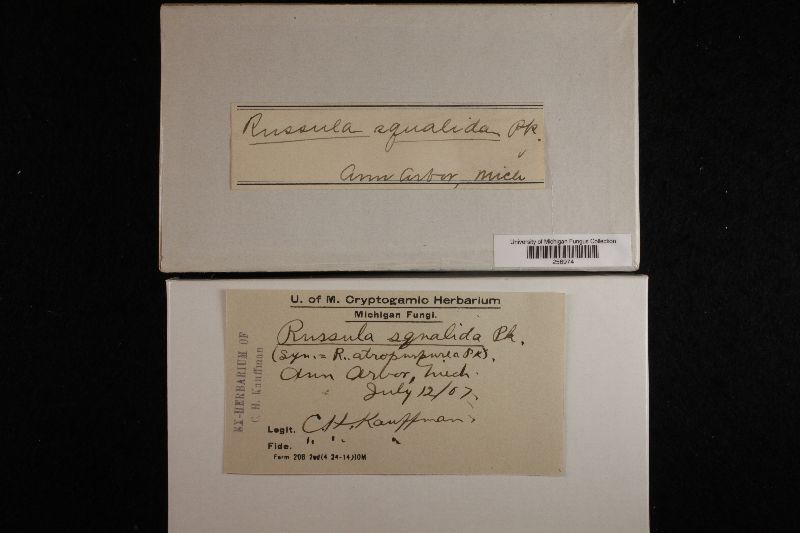 Russula squalida Pk.
Ann Arbor, Mich
University of Michigan Fungus Collection
256974
U. of M. Cryptogamic Herbarium
Michigan Fungi.
Russula squalida Pk.
(Syn. = R. atropurpurea Pk).
Ann Arbor, Mich.
July 12/07.
EX-HERBARIUM OF
C. H. Kauffman
Legit. C.H. Kauffman.
Fide. " " "
Form 206 2nd(4 24-14)10M